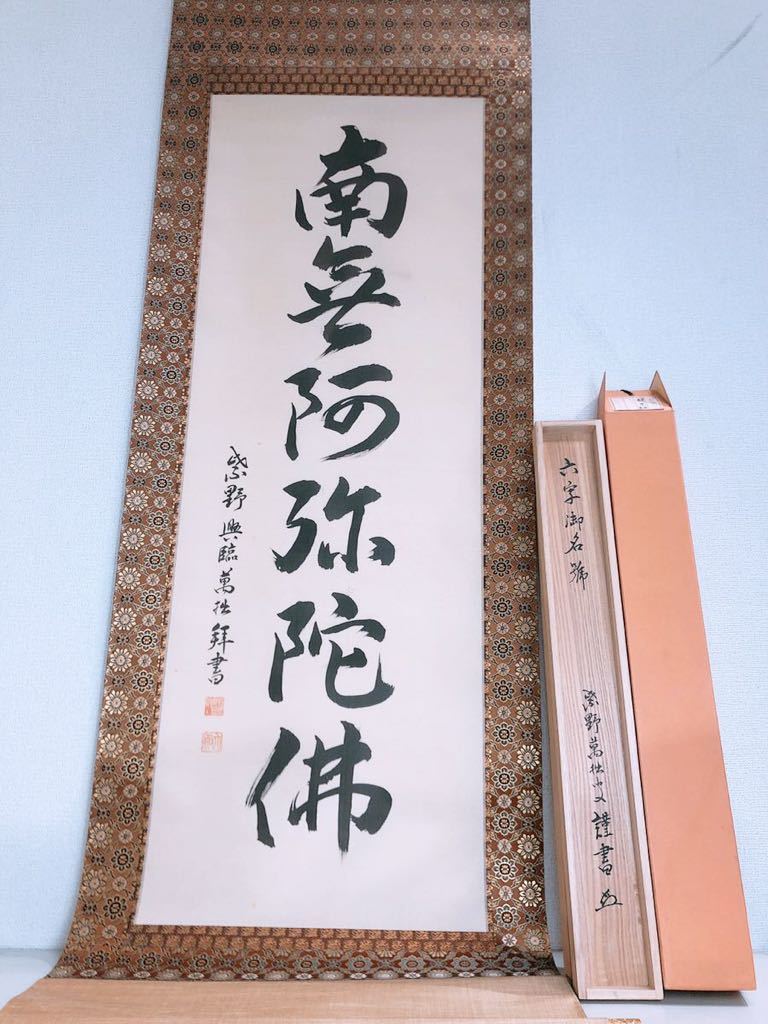 南無阿弥陀佛
紫野興臨萬拙拜書
六字御名號
紫野萬拙叟謹書